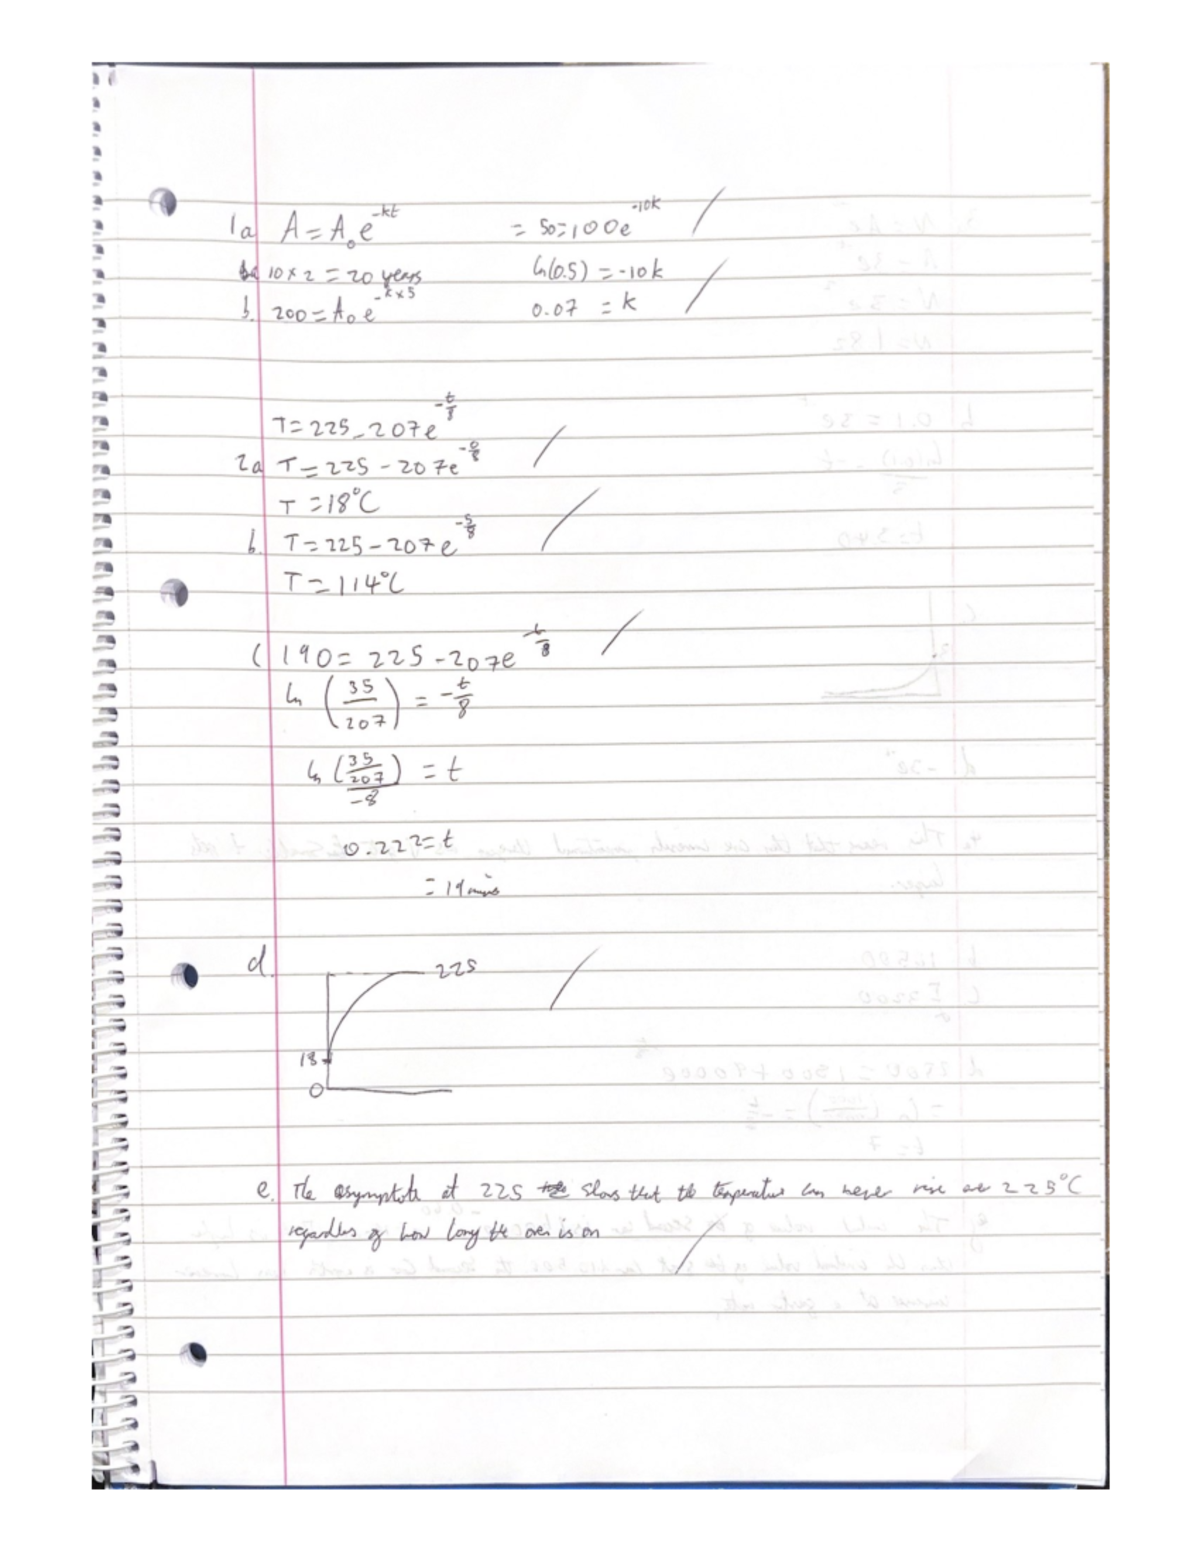 1a A = A₀e^-kt = 50=100e^-10k
10 × 2 = 20 years ln(0.5) = -10k
b. 200 = A₀e^-k×5 0.07 = k
T = 225 - 207e^-t/8
2a T = 225 - 207e^-0/8
T = 18°C
b. T = 225 - 207e^-5/8
T = 114°C
c 190 = 225 - 207e^-t/8
ln (35/207) = -t/8
ln (35/207)/-8 = t
0.222 = t
= 14 mins
d. 225
18
0
e. The asymptote at 225 shows that the temperature can never rise over 225°C
regardless of how long the oven is on